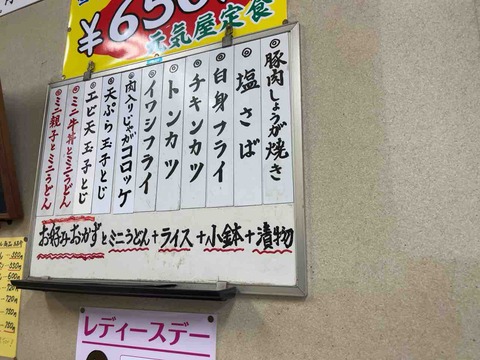 ¥650
元気屋定食
◎豚肉しょうが焼き
◎塩さば
◎白身フライ
◎チキンカツ
◎トンカツ
◎イワシフライ
◎肉入りじゃがコロッケ
◎天ぷら玉子とじ
◎エビ天玉子とじ
◎ミニ牛丼とミニうどん
◎ミニ親子とミニうどん
お好みおかずとミニうどん+ライス+小鉢+漬物
レディースデー